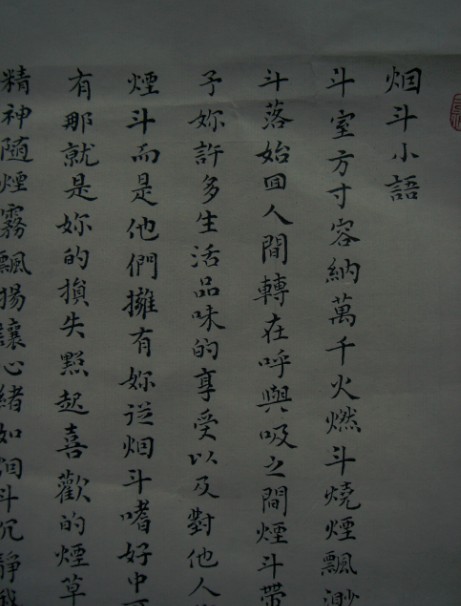 烟斗小語
斗室方寸容納萬千火燃斗燒煙飄渺
斗落始回人間轉在呼與吸之間煙斗帶
予妳許多生活品味的享受以及對他人
煙斗而是他們擁有妳從烟斗嗜好中
有那就是妳的損失點起喜歡的煙草
精神隨煙霧飄揚讓心緒如烟斗沉靜